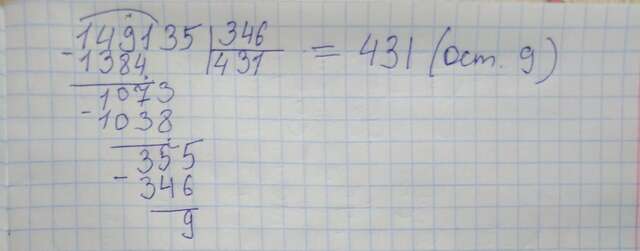 149135 | 346 = 431 (ост. 9)
- 1384 | 431
1073
- 1038
355
- 346
9